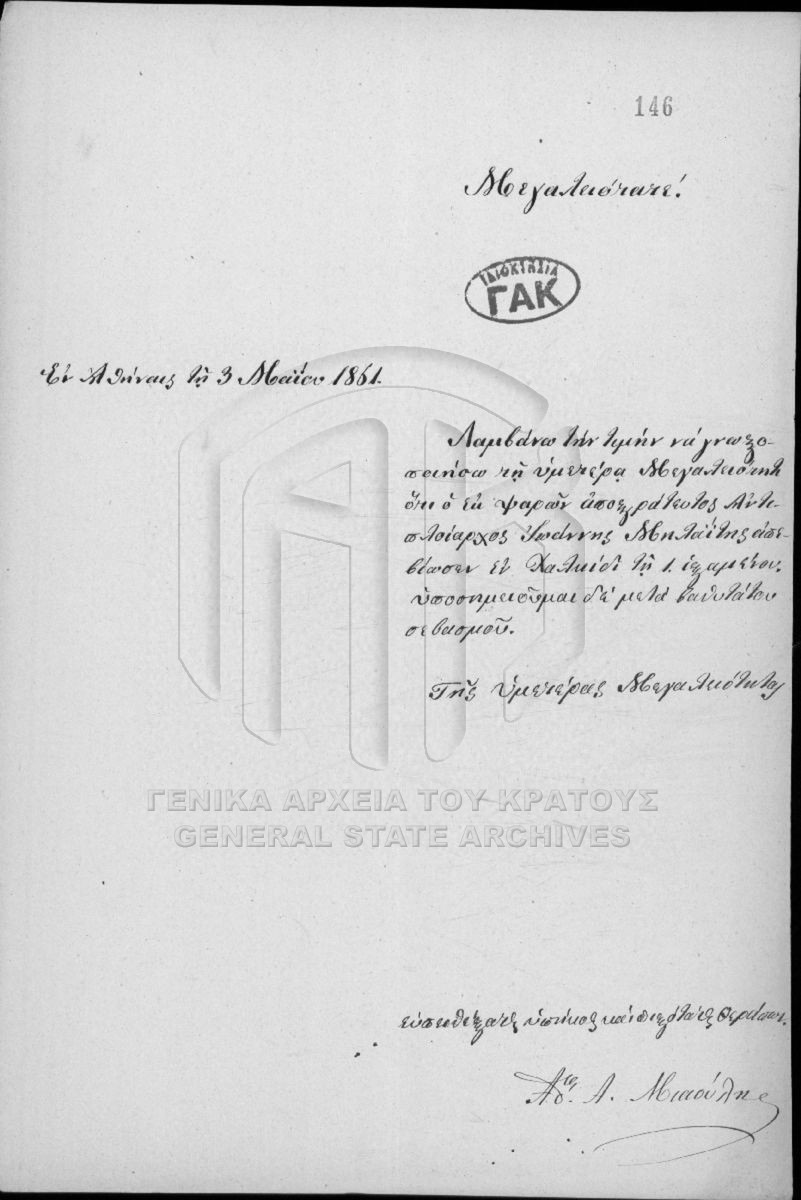 146
Μεγαλειότατε!
ΙΔΙΟΚΤΗΣΙΑ
ΓΑΚ
Ἐν Ἀθήναις τῇ 3 Μαΐου 1861.
Λαμβάνω τὴν τιμὴν νὰ γνωστο-
ποιήσω τῇ ὑμετέρᾳ Μεγαλειότητι
ὅτι ὁ ἐκ Ψαρῶν ἀποστράτευτος Ἀντι
πλοίαρχος Ἰωάννης Μηλαΐτης ἀπε-
βίωσεν ἐν Χαλκίδι τῇ 1. ἱσταμένου.
ὑποσημειοῦμαι δὲ μετὰ βαθυτάτου
σεβασμοῦ.
Τῆς ὑμετέρας Μεγαλειότητος
ΓΕΝΙΚΑ ΑΡΧΕΙΑ ΤΟΥ ΚΡΑΤΟΥΣ
GENERAL STATE ARCHIVES
εὐπειθέστατος ὑπήκοος καὶ πιστότατος θεράπων.
Α. Μιαούλης